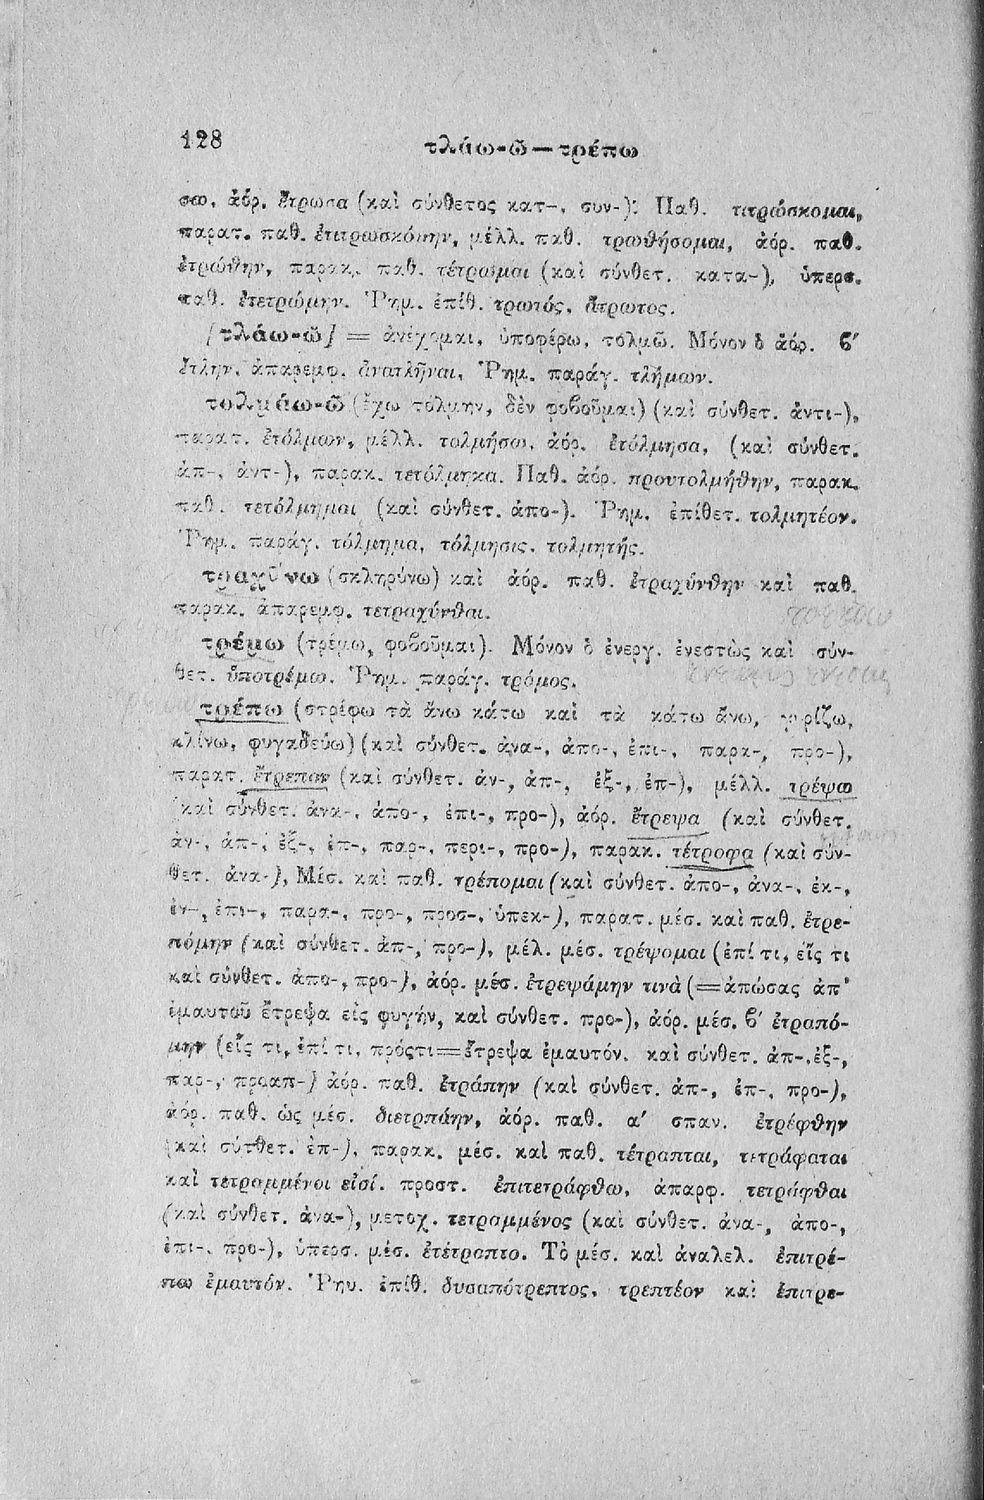 128
τλάω-ῶ — τρέπω
σω, ἀόρ. ἔτρωσα (καὶ σύνθετος κατ-, συν-): Παθ. τιτρώσκομαι,
παρατ. παθ. ἐτιτρωσκόμην, μέλλ. παθ. τρωθήσομαι, ἀόρ. παθ.
ἐτρώθην, παρακ. παθ. τέτρωμαι (καὶ σύνθετ. κατα-), ὑπερσ.
παθ. ἐτετρώμην. Ῥημ. ἐπίθ. τρωτός, ἄτρωτος.
[τλάω-ῶ] = ἀνέχομαι, ὑποφέρω, τολμῶ. Μόνον ὁ ἀόρ. ϐ′
ἔτλην, ἀπαρεμφ. ἀνατλῆναι, Ῥημ. παράγ. τλήμων.
τολμάω-ῶ (ἔχω τόλμην, δὲν φοβοῦμαι) (καὶ σύνθετ. ἀντι-),
παρατ. ἐτόλμων, μέλλ. τολμήσω, ἀόρ. ἐτόλμησα, (καὶ σύνθετ.
ἀπ-, ἀντ-), παρακ. τετόλμηκα. Παθ. ἀόρ. προυτολμήθην, παρακ.
παθ. τετόλμημαι (καὶ σύνθετ. ἀπο-). Ῥημ. ἐπίθετ. τολμητέον.
Ῥημ. παράγ. τόλμημα, τόλμησις, τολμητής.
τραχύνω (σκληρύνω) καὶ ἀόρ. παθ. ἐτραχύνθην καὶ παθ.
παρακ. ἀπαρεμφ. τετραχύνθαι.
τρέμω (τρέμω, φοβοῦμαι). Μόνον ὁ ἐνεργ. ἐνεστὼς καὶ σύν-
θετ. ὑποτρέμω. Ῥημ. παράγ. τρόμος.
τρέπω (στρέφω τὰ ἄνω κάτω καὶ τὰ κάτω ἄνω, γυρίζω,
κλίνω, φυγαδεύω) (καὶ σύνθετ. ἀνα-, ἀπο-, ἐπι-, παρα-, προ-),
παρατ. ἔτρεπον (καὶ σύνθετ. ἀν-, ἀπ-, ἐξ-, ἐπ-), μέλλ. τρέψω
(καὶ σύνθετ. ἀνα-, ἀπο-, ἐπι-, προ-), ἀόρ. ἔτρεψα (καὶ σύνθετ.
ἀν-, ἀπ-, ἐξ-, ἐπ-, παρ-, περι-, προ-), παρακ. τέτροφα (καὶ σύν-
θετ. ἀνα-), Μέσ. καὶ παθ. τρέπομαι (καὶ σύνθετ. ἀπο-, ἀνα-, ἐκ-,
ἐν-, ἐπι-, παρα-, προ-, προσ-, ὑπεκ-), παρατ. μέσ. καὶ παθ. ἐτρε-
πόμην (καὶ σύνθετ. ἀπ-, προ-), μέλ. μέσ. τρέψομαι (ἐπί τι, εἴς τι
καὶ σύνθετ. ἀπο-, προ-), ἀόρ. μέσ. ἐτρεψάμην τινὰ (=ἀπώσας ἀπ'
ἐμαυτοῦ ἔτρεψα εἰς φυγήν, καὶ σύνθετ. προ-), ἀόρ. μέσ. ϐ′ ἐτραπό-
μην (εἴς τι, ἐπί τι, πρός τι=ἔτρεψα ἐμαυτόν, καὶ σύνθετ. ἀπ-, ἐξ-,
παρ-, προαπ-) ἀόρ. παθ. ἐτράπην (καὶ σύνθετ. ἀπ-, ἐπ-, προ-),
ἀόρ. παθ. ὡς μέσ. διετρπάην, ἀόρ. παθ. α′ σπαν. ἐτρέφθην
(καὶ σύνθετ. ἐπ-), παρακ. μέσ. καὶ παθ. τέτραπται, τετράφαται
καὶ τετραμμένοι εἰσί. προστ. ἐπιτετράφθω, ἀπαρφ. τετράφθαι
(καὶ σύνθετ. ἀνα-), μετοχ. τετραμμένος (καὶ σύνθετ. ἀνα-, ἀπο-,
ἐπι-, προ-), ὑπερσ. μέσ. ἐτέτραπτο. Τὸ μέσ. καὶ ἀναλελ. ἐπιτρέ-
πω ἐμαυτόν. Ῥημ. ἐπίθ. δυσαπότρεπτος, τρεπτέον καὶ ἐπιτρε-